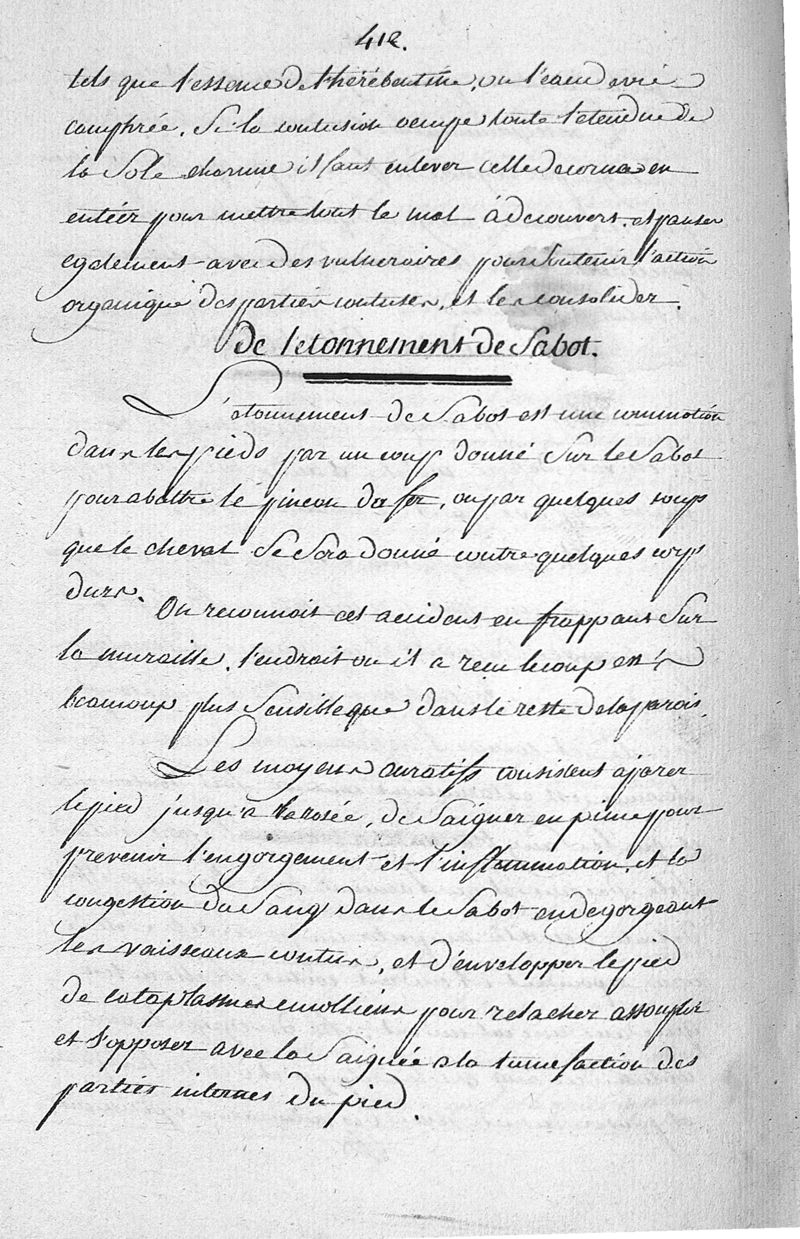 412.
tels que l'essence de thérébentine, ou l'eau de vie
camphrée. Si la contusion occupe toute l'etendue de
la Sole charnue il faut enlever celle de corne en
entéer pour mettre tout le mal à decouvert. et panser
egalement avec des vulneraires pour Soutenir l'action
organique des parties contuses, et les consolider.
de letonnement de Sabot.
L'etonnement de Sabot est une commotion
dans les pieds par un coup donné Sur le Sabot
pour abattre le pincon du fer, ou par quelques coups
que le cheval Se Sera donné contre quelques corps
durs.
On reconnoit cet accident en frappant Sur
la muraille. l'endroit ou il a recu le coup est
beaucoup plus Sensible que dans le reste de la parois.
Les moyens curatifs consistent a parer
le pied jusqu'a la rosée, de Saigner en pince pour
prevenir l'engorgement et l'inflammation, et la
congestion du Sang dans le Sabot en degorgeant
les vaisseaux contus, et d'envelopper le pied
de cataplasmes emolliens pour relacher assouplir
et S'opposer avec la Saignée a la tumefaction des
parties internes du pied.